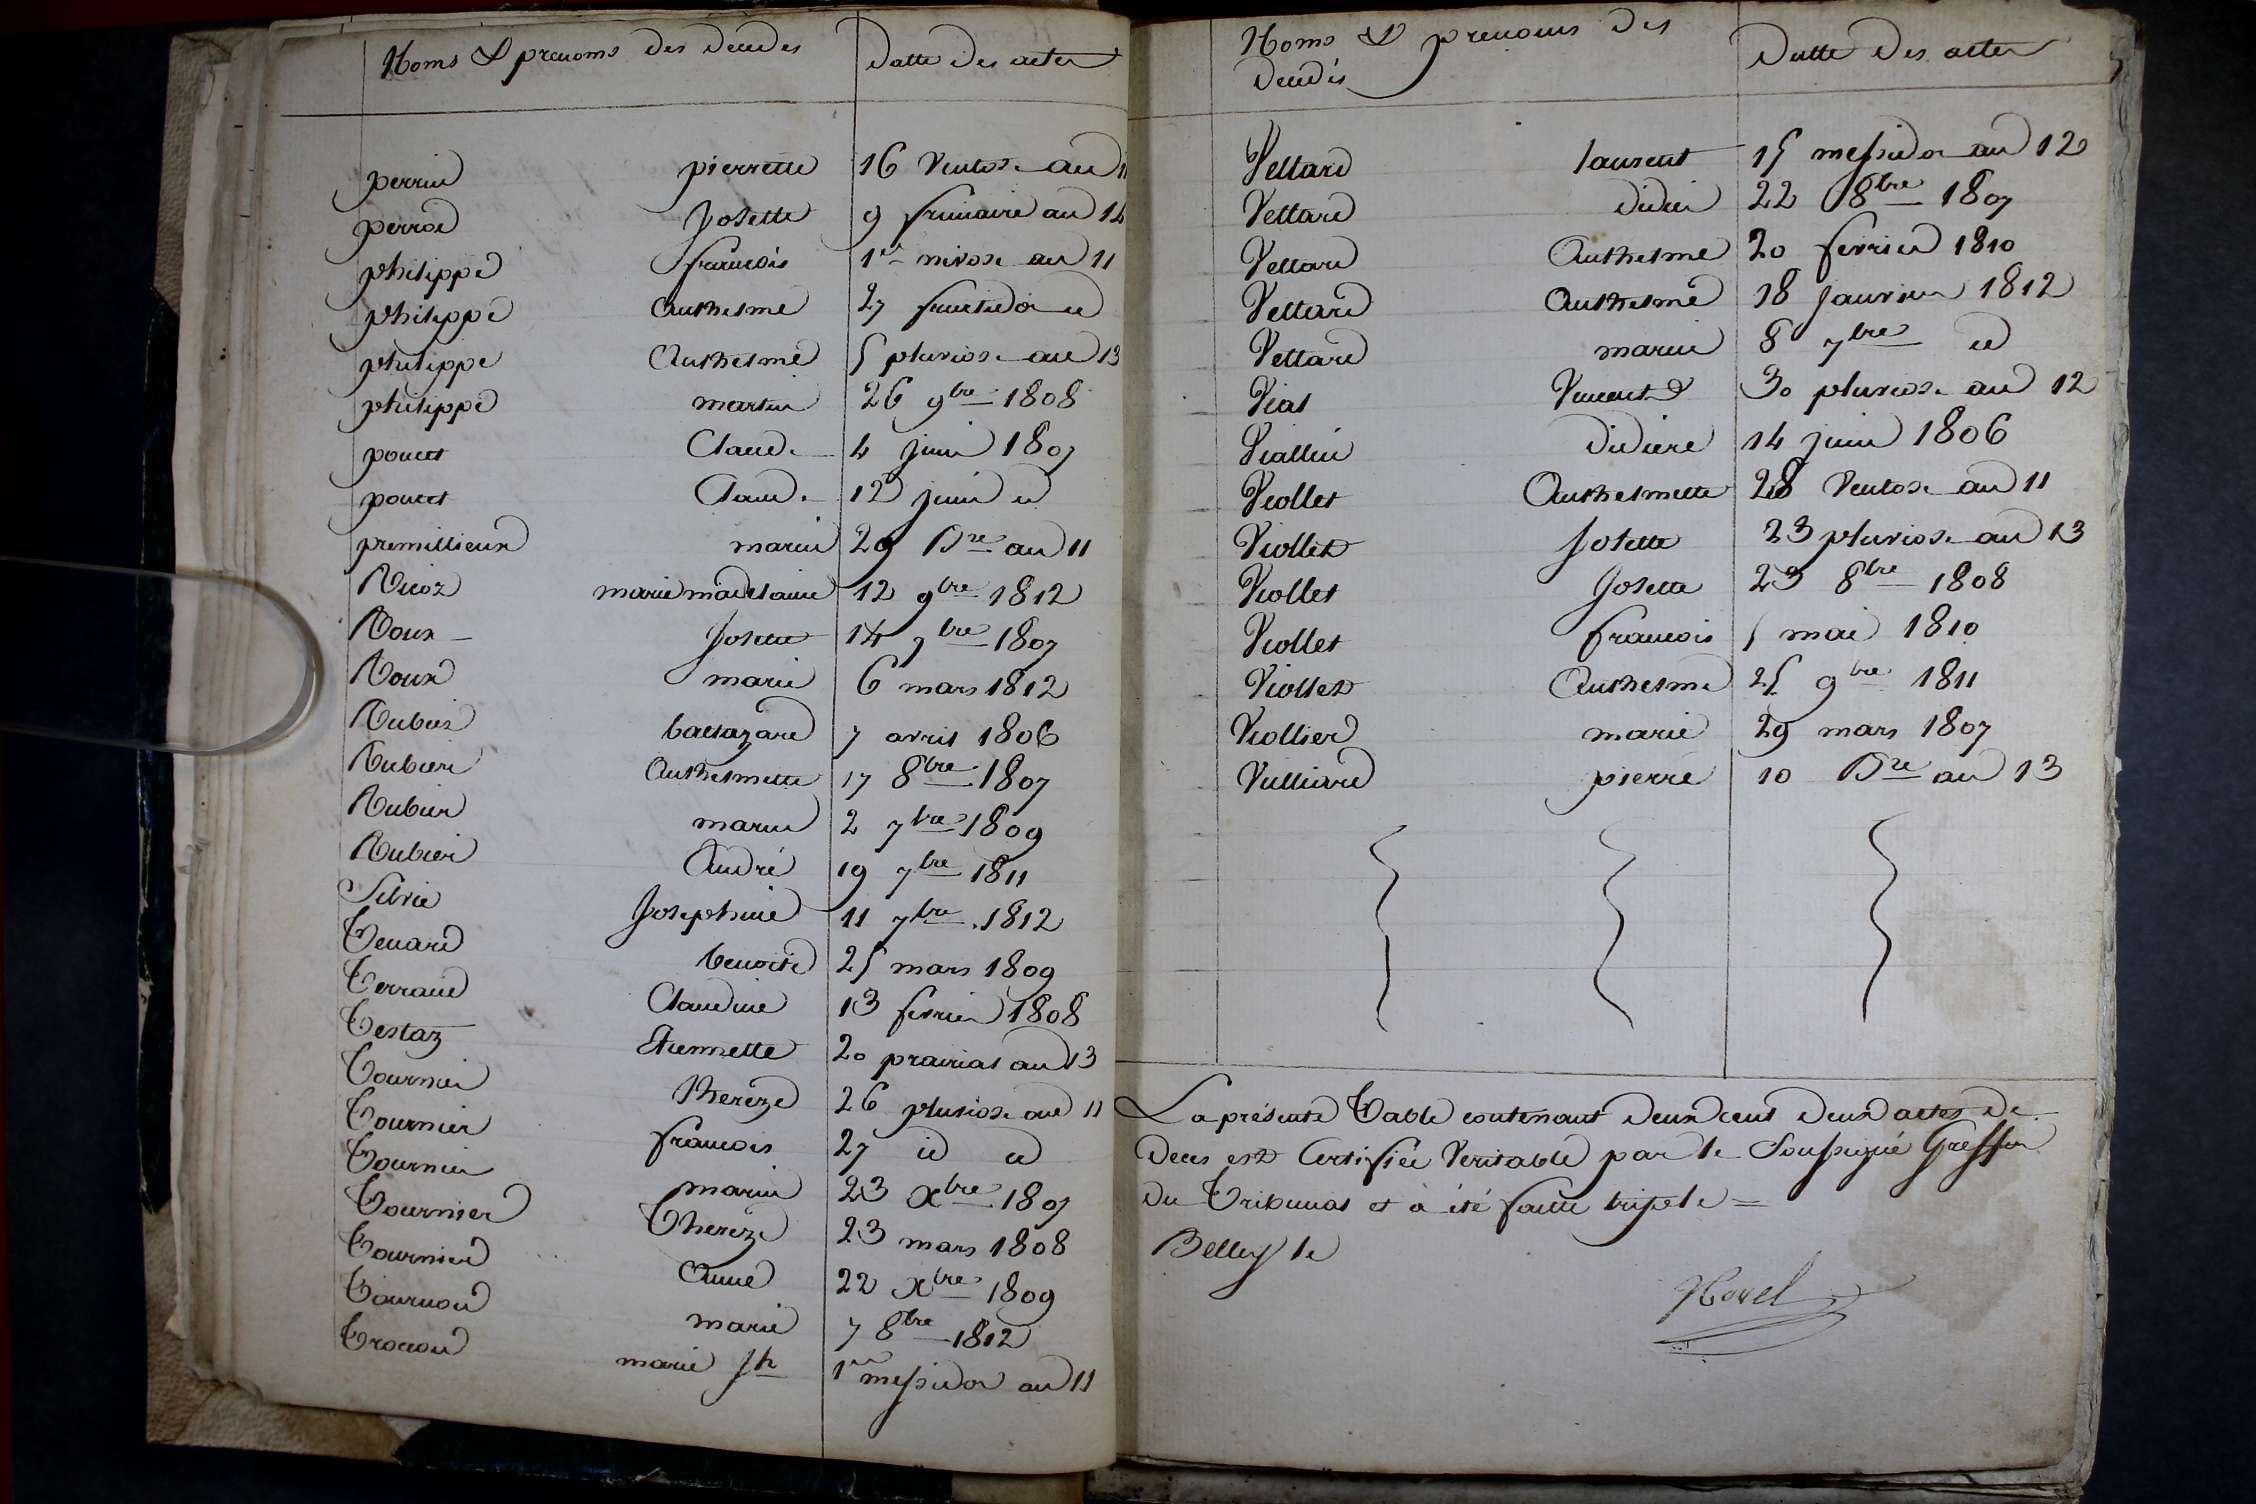 Noms & prenoms des decedes Datte des actes
perrin pierrette 16 Ventose an 11
perrod Josette 9 frimaire an 14
philippe francois 1er nivose an 11
philippe Anthelme 27 fructidor id
philippe Anthelme 5 pluviose an 13
philippe martin 26 9bre 1808
poncet Claude 4 juin 1807
poncet Claude 12 juin id
premillieux marin 29 Bre an 11
Ricoz marie madelaine 12 9bre 1812
Roux Josette 14 7bre 1807
Roux marie 6 mars 1812
Rubier baltazard 7 avril 1806
Rubier Anthelmette 17 8bre 1807
Rubier marin 2 7bre 1809
Rubier André 19 7bre 1811
Silvie Josephine 11 7bre 1812
Tenard benoite 25 mars 1809
Terraud Claudine 13 fevrier 1808
Testaz Etiennette 20 prairial an 13
Tournier Thereze 26 pluviose an 11
Tournier francois 27 id id
Tournier marin 23 Xbre 1807
Tournier Thereze 23 mars 1808
Tournier Anne 22 Xbre 1809
Tournon marie 7 8bre 1812
Troccon marie Jh 1er messidor an 11
Noms & prenoms des Datte des actes
decedés
Vettard laurent 15 messidor an 12
Vettard didier 22 8bre 1807
Vettard Anthelme 20 fevrier 1810
Vettard Anthelme 18 janvier 1812
Vettard marin 8 7bre id
Vial Vincent 30 pluviose an 12
Viallin didiere 14 juin 1806
Viollet Anthelmette 28 Ventose an 11
Viollet Josette 23 pluviose an 13
Viollet Josette 23 8bre 1808
Viollet francois 5 mai 1810
Viollet Anthelme 25 9bre 1811
Viollier marie 29 mars 1807
Vulliard pierre 10 Bre an 13
La présente Table contenant deux cent deux actes de
deces est Certifiée Veritable par le Soussigné Greffier
du Tribunal et à été faitte triple =
Belley le
Morel